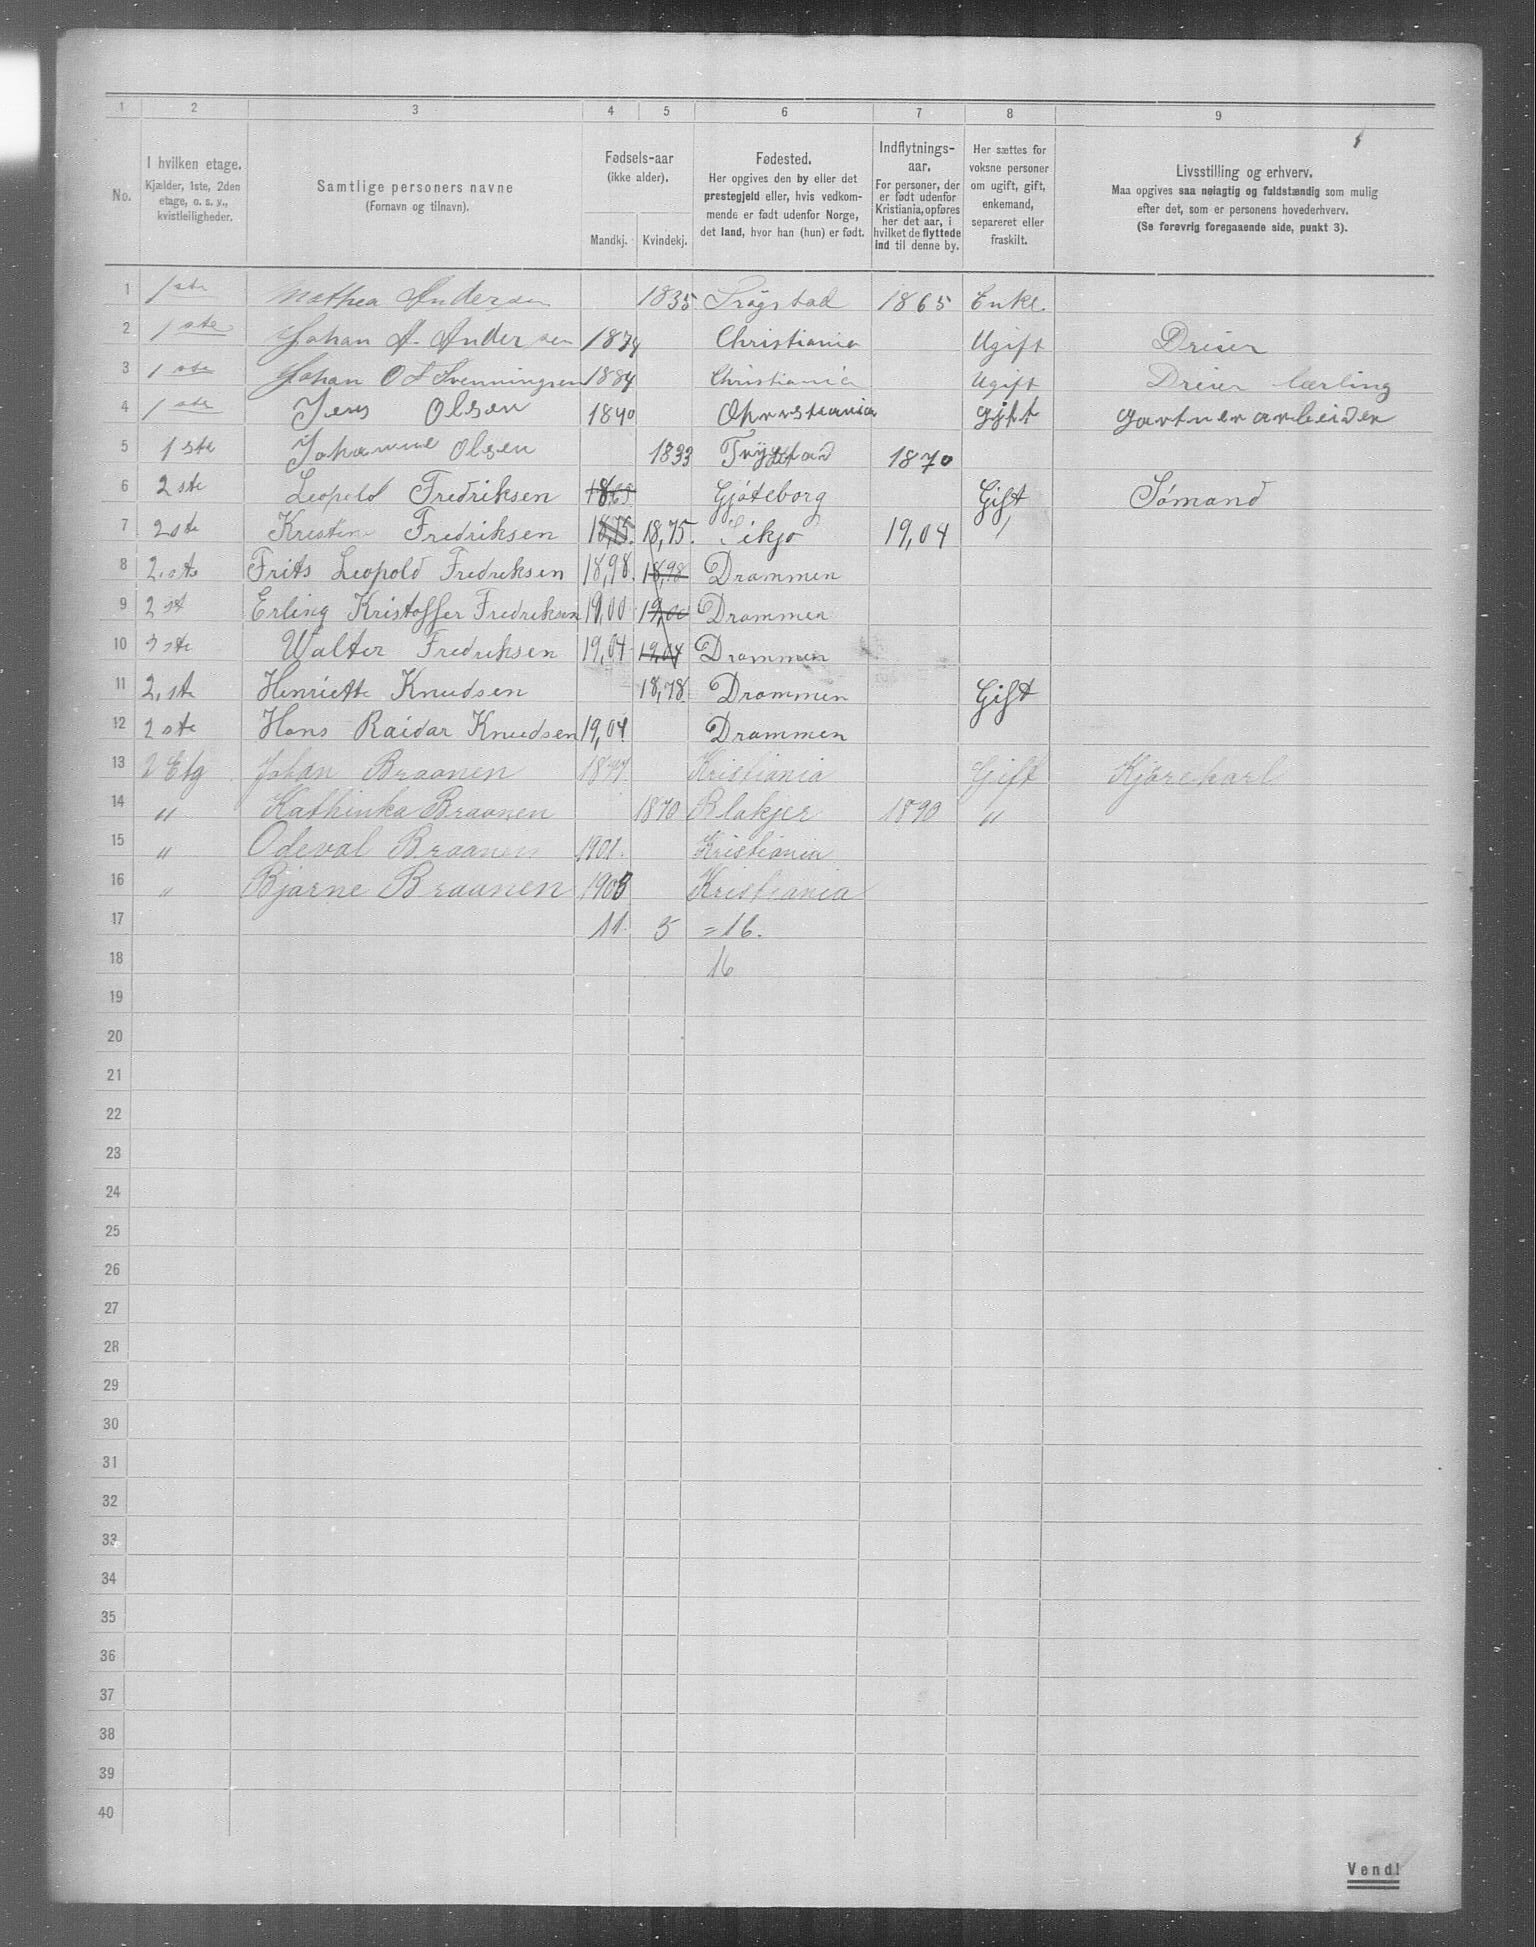 1 2 3 4 5 6 7 8 9
No.
I hvilken etage.
Kjælder, 1ste, 2den
etage, o. s. v.,
kvistleiligheder.
Samtlige personers navne
(Fornavn og tilnavn).
Fødsels-aar
(ikke alder).
Mandkj. Kvindekj.
Fødested.
Her opgives den by eller det
prestegjeld eller, hvis vedkom-
mende er født udenfor Norge,
det land, hvor han (hun) er født.
Indflytnings-
aar.
For personer, der
er født udenfor
Kristiania, opføres
her det aar, i
hvilket de flyttede
ind til denne by.
Her sættes for
voksne personer
om ugift, gift,
enkemand,
separeret eller
fraskilt.
Livsstilling og erhverv.
Maa opgives saa nøiagtig og fuldstændig som mulig
efter det, som er personens hovederhverv.
(Se forøvrig foregaaende side, punkt 3).
1 1ste Mathea Andersen 1835 Trøgstad 1865 Enke.
2 1ste Johan A. Andersen 1874 Christiania Ugift Dreier
3 1ste Johan O L Svenningsen 1884 Christiania Ugift Dreier lærling
4 1ste Jens Olsen 1840 Christiania gift gartnerarbeider
5 1ste Johanne Olsen 1833 Trygstad 1870
6 2ste Leopold Fredriksen 1865 Gjøteborg Gift Sømand
7 2ste Kristine Fredriksen 1875. 18,75. 19,04
8 2.ste Frits Leopold Fredriksen 18,98. 18,98 Drammen
9 2 st Erling Kristoffer Fredriksen 19,00 19,00 Drammen
10 2ste Walter Fredriksen 19,04 19,04 Drammen
11 2.ste Henriette Knudsen 18,78. Drammen Gift
12 2 ste Hans Raidar Knudsen 19,04 Drammen
13 2 Etg Johan Braanen Kristiania Gift Kjørekarl
14 " Kathinka Braanen 1870 Blakjer 1890 "
15 " Odeval Braanen 1901. Kristiania
16 " Bjarne Braanen 1903 Kristiania
17 11. 5 = 16.
18 16
19
20
21
22
23
24
25
26
27
28
29
30
31
32
33
34
35
36
37
38
39
40
Vend!